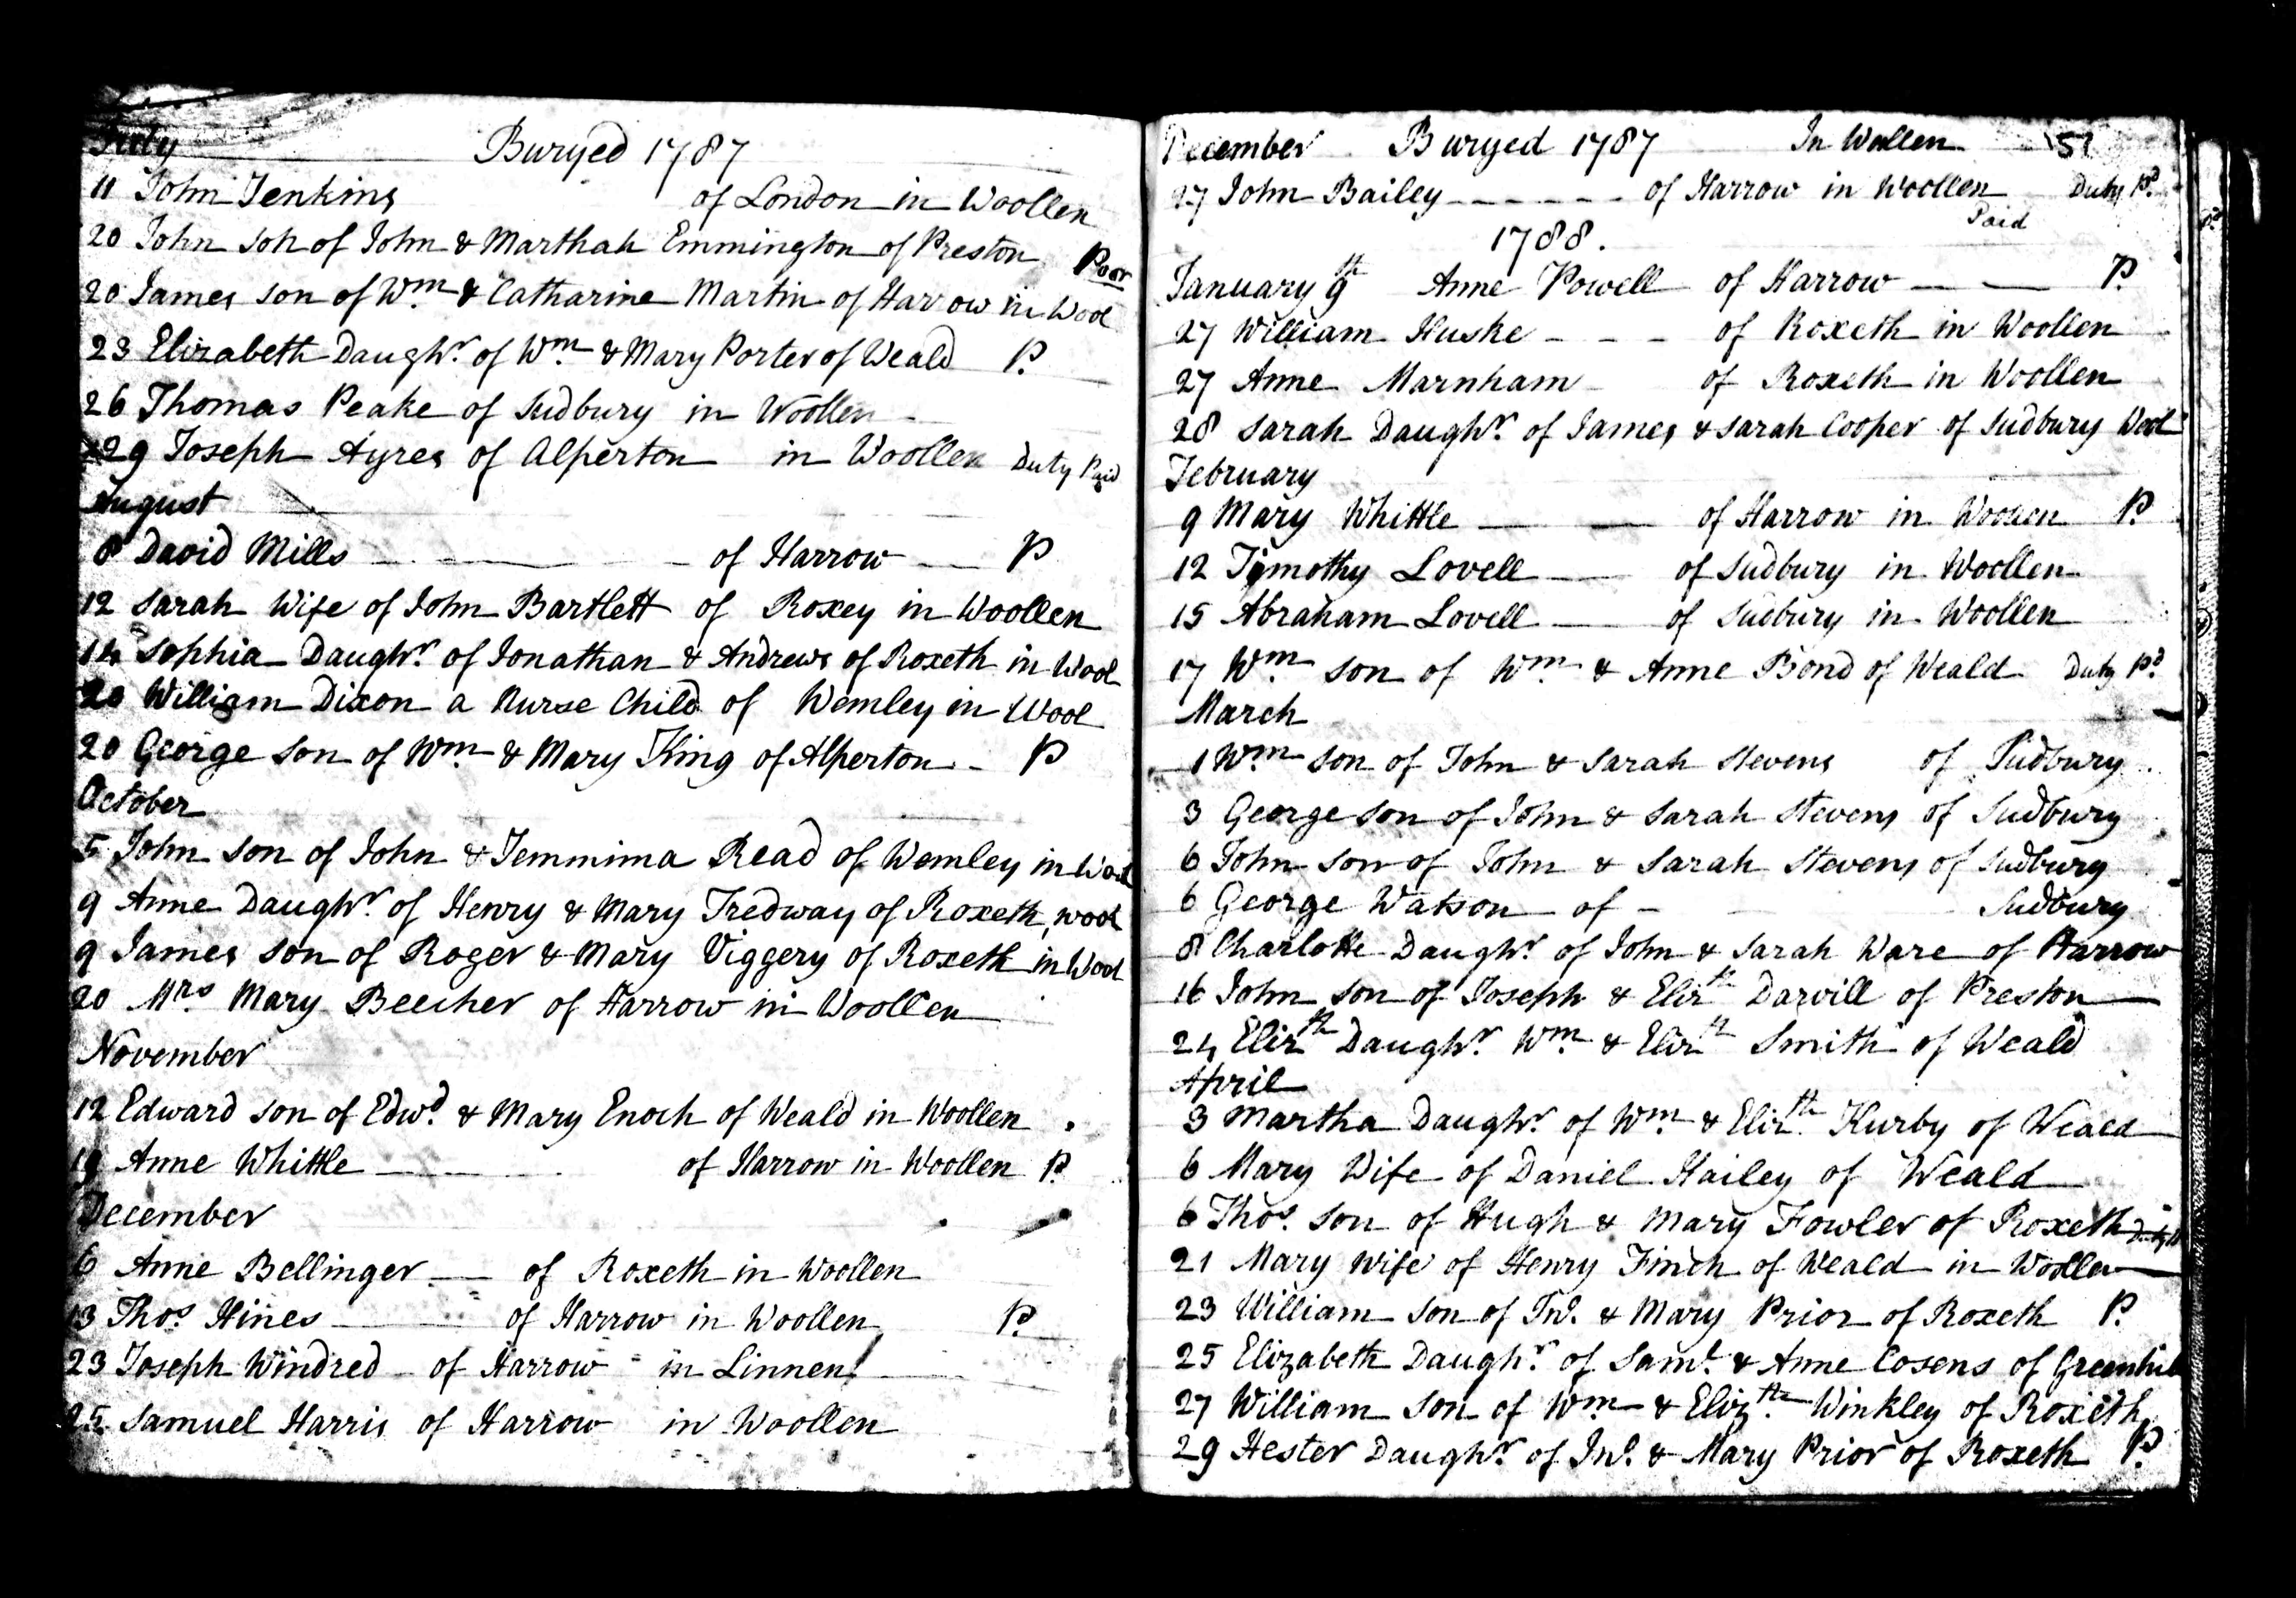 July Buryed 1787
11 John Jenkins of London in Woollen
20 John son of John & Marthah Emmington of Preston Poor
20 James son of Wm & Catharine Martin of Harrow in Wool
23 Elizabeth Daughr. of Wm. & Mary Porter of Weald P.
26 Thomas Peake of Sudbury in Woollen
29 Joseph Ayres of Alperton in Woollen Duty Paid
August
8 David Mills of Harrow P
12 Sarah Wife of John Bartlett of Roxey in Woollen
14 Sophia Daughr. of Jonathan & Andrews of Roxeth in Wool
20 William Dixon a Nurse Child of Wemley in Wool
20 George son of Wm. & Mary King of Alperton P
October
5 John son of John & Jemmima Read of Wemley in Wool
9 Anne Daughr. of Henry & Mary Tredway of Roxeth, wool
9 James son of Roger & Mary Viggery of Roxeth in Wool
20 Mrs Mary Beecher of Harrow in Woollen
November
12 Edward son of Edwd. & Mary Enoch of Weald in Woollen
19 Anne Whittle of Harrow in Woollen P.
December
6 Anne Bellinger of Roxeth in Woollen
13 Thos. Hines of Harrow in Woollen P.
23 Joseph Windred of Harrow in Linnen
25 Samuel Harris of Harrow in Woollen
December Buryed 1787 In Wollen 51
27 John Bailey of Harrow in Woollen Duty Pd.
1788. Paid
January 9th Anne Powell of Harrow P.
27 William Huske of Roxeth in Woollen
27 Anne Marnham of Roxeth in Woollen
28 Sarah Daughr. of James & Sarah Cooper of Sudbury Wool
February
9 Mary Whittle of Harrow in Woollen P.
12 Tymothy Lovell of Sudbury in Woollen
15 Abraham Lovell of Sudbury in Woollen
17 Wm. son of Wm. & Anne Bond of Weald Duty Pd.
March
1 Wm. son of John & Sarah Stevens of Sudbury
3 George son of John & Sarah Stevens of Sudbury
6 John son of John & Sarah Stevens of Sudbury
6 George Watson of Sudbury
8 Charlotte Daughr. of John & Sarah Ware of Harrow
16 John son of Joseph & Elizth Darvill of Preston
24 Elizth Daughr. Wm. & Elizth Smith of Weald
April
3 Martha Daughr. of Wm. & Elizth. Kurby of Weald
6 Mary Wife of Daniel Hailey of Weald
6 Thos. son of Hugh & Mary Fowler of Roxeth
21 Mary Wife of Henry Finch of Weald in Woollen
23 William son of Jno. & Mary Prior of Roxeth P.
25 Elizabeth Daughr. of Saml. & Anne Cosens of Greenhill
27 William son of Wm. & Elizth. Winkley of Roxeth
29 Hester Daughr. of Jno. & Mary Prior of Roxeth P.